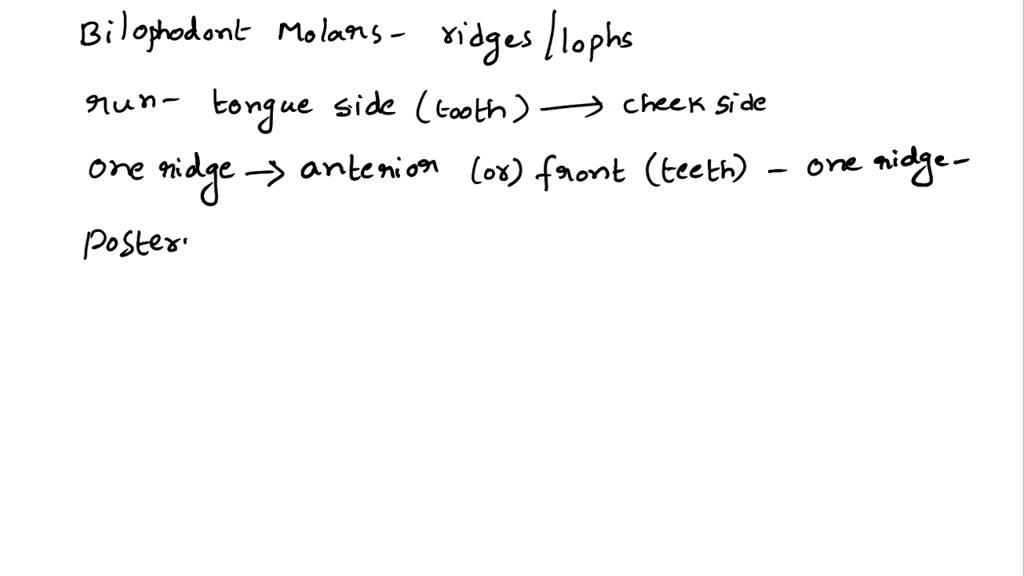 Bilophodont Molars - ridges/lophs
run - tongue side (tooth) → cheek side
one ridge → anterior (or) front (teeth) - one ridge -
poster